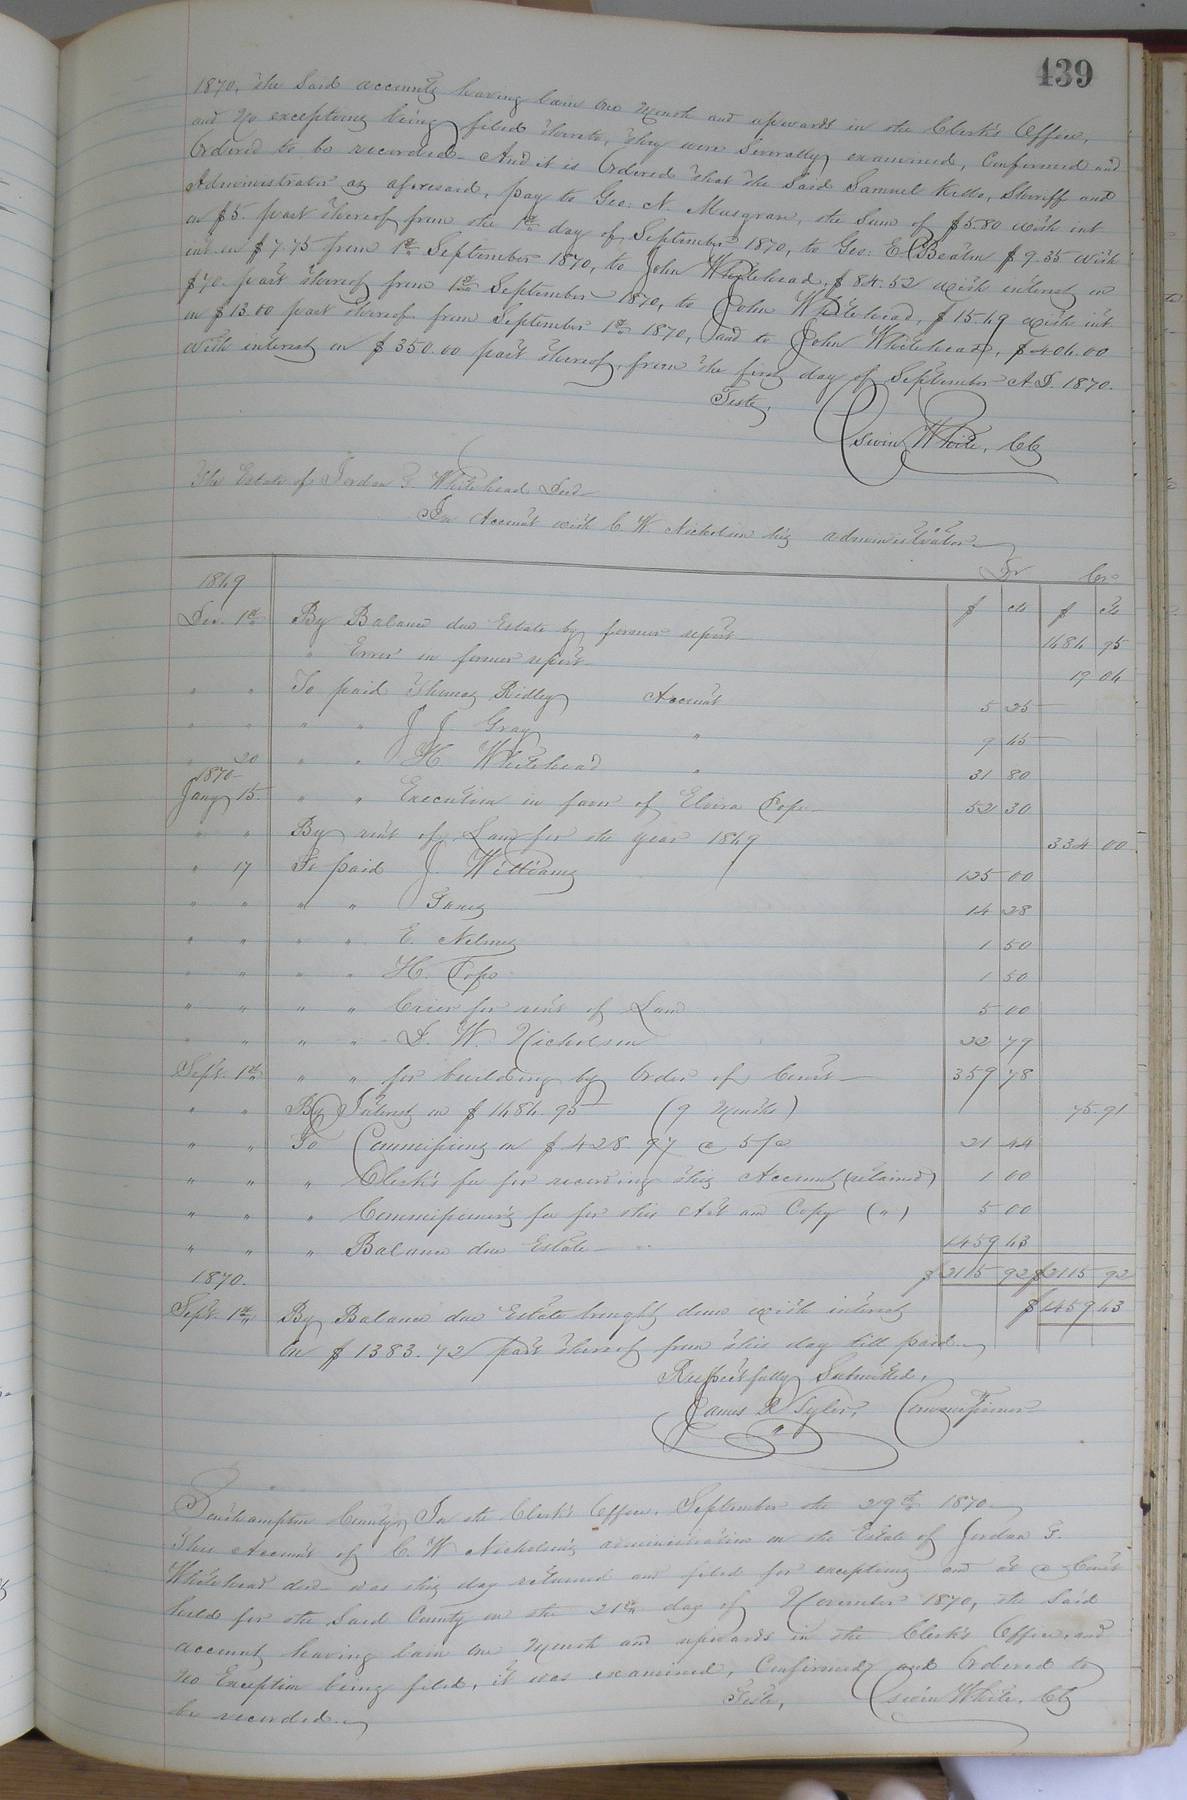 439
1870, the said accounts having lain one month and upwards in the Clerk's Office,
and no exceptions being filed thereto, they were severally examined, Confirmed and
Ordered to be recorded. And it is Ordered that the Said Samuel Kello, Sheriff and
Administrator as aforesaid, pay to Geo. N. Musgrave, the Sum of $5.80 with int
on $5. part thereof from the 1st day of September 1870, to Geo: E. Beaton $9.35 with
int on $7.75 from 1st September 1870, to John Whitehead, $84.52 with interest on
$70. part thereof from 1st September 1870, to John Whitehead, $15.49 with int
on $13.00 part thereof from September 1st 1870, and to John Whitehead, $406.00
with interest on $350.00 part thereof, from the first day of September A.D. 1870.
Teste,
Edwin White, CC
The Estate of Jordan G. Whitehead Decd
In Account with C W Nicholson his administrator
Dr Cr
1869 $ cts $ cts
Dec. 1st By Balance due Estate by former report 1684 95
" Error in former report 19 06
" " To paid Thomas Ridley Account 5 25
" " " " J J Gray " 9 45
" 20 " " H Whitehead " 31 80
1870
Jany 15 " " Execution in favor of Elvira Pope 52 30
" " By rent of Land for the year 1869 334 00
" 17 To paid J. Williams 125 00
" " " " Taxes 14 28
" " " " E. Nelms 1 50
" " " " H. Pope 1 50
" " " " Crier for rent of Land 5 00
" " " " D. W. Nicholson 22 79
Sept. 1st " " for building by Order of Court 359 78
" " By Interest on $1684.95 (9 Months) 75.91
" " To Commissions on $428 97 @ 5/c 21 44
" " " Clerk's fee for recording this Account (retained) 1 00
" " " Commissioner's fee for this Act and Copy (") 5 00
" " " Balance due Estate 1459 43
1870. $2115 92 $2115 92
Sept. 1st By Balance due Estate brought down with interest $1459 43
On $1383.72 part thereof from this day till paid
Respectfully Submitted,
James R Tyler, Commissioner
Southampton County, In the Clerk's Office, September the 29th 1870
This Account of C. W Nicholson's administration on the Estate of Jordan G.
Whitehead decd was this day returned and filed for exceptions and at a Court
held for the Said County on the 21st day of November 1870, the said
account having lain one month and upwards in the Clerk's Office, and
no Exception being filed, it was examined, Confirmed and Ordered to
be recorded.
Teste, Edwin White, CC